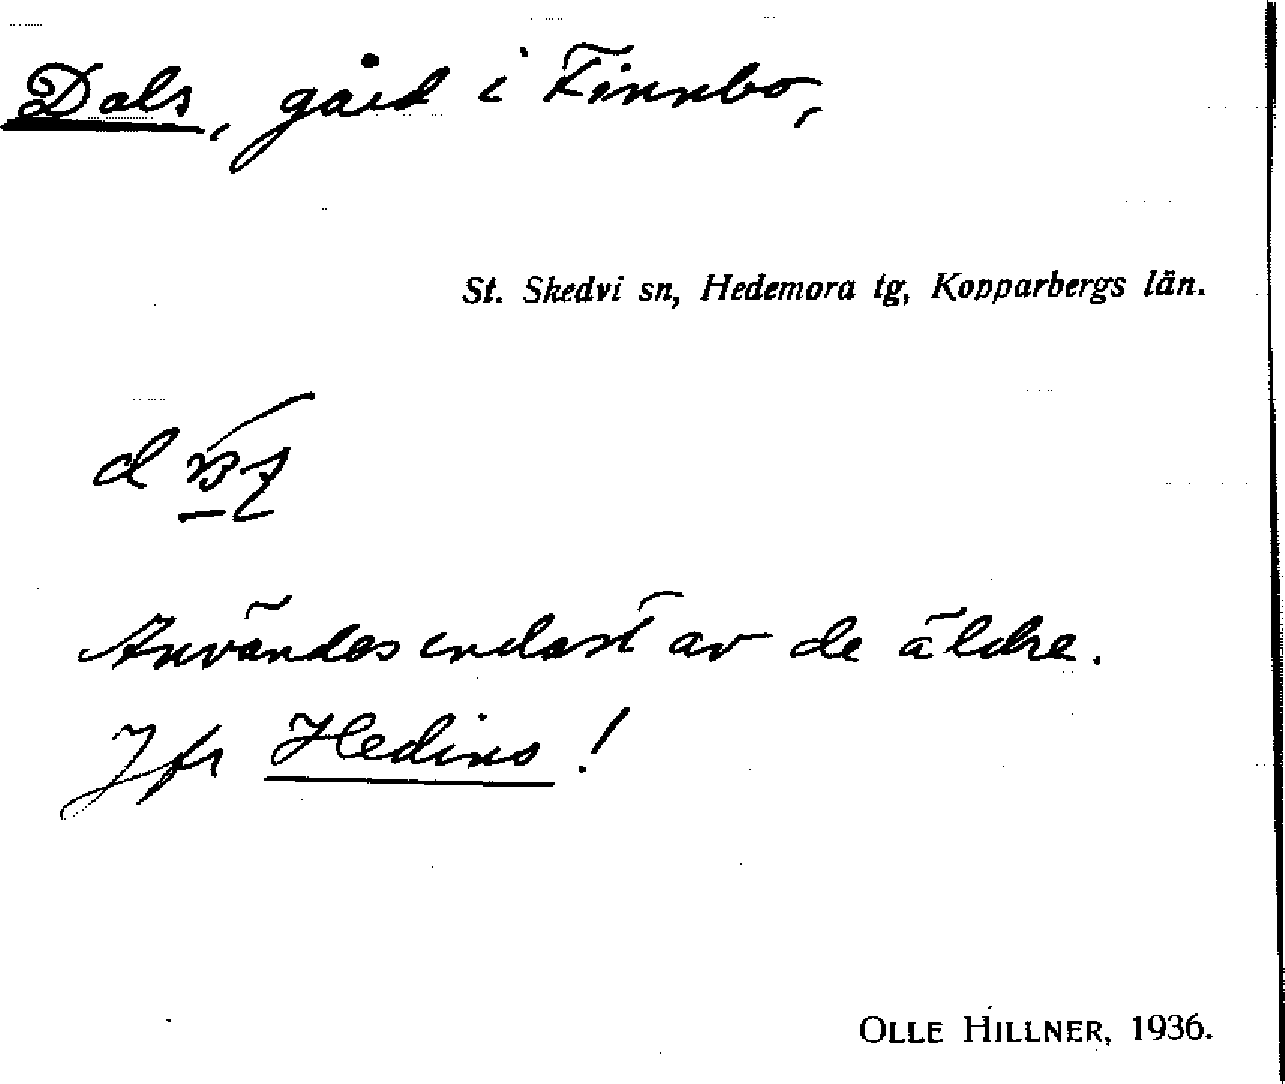 Dals, gård i Finnbo,
St. Skedvi sn, Hedemora tg, Kopparbergs län.
Användes endast av de äldre.
Jfr Hedins !
OLLE HILLNER, 1936.